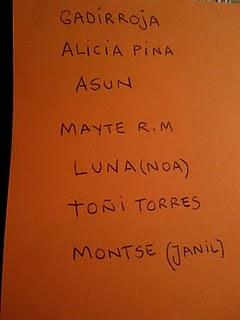 GADIRROJA
ALICIA PINA
ASUN
MAYTE R.M
LUNA(NOA)
TOÑI TORRES
MONTSE (JANIL)